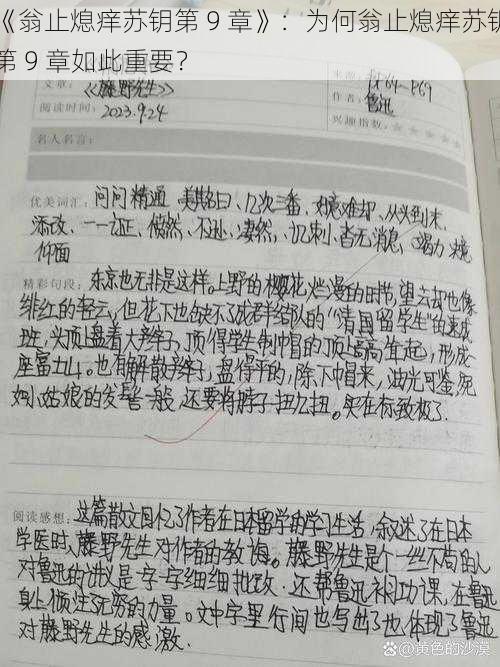 《翁止熄痒苏钥第 9 章》：为何翁止熄痒苏钥
第 9 章如此重要？
文章：《藤野先生》
来源：P64-P69
作者：鲁迅
阅读时间：2023.9.24
兴趣指数：☆☆☆☆☆
名人名言：
优美词汇：问问 精通、美其名曰、几次三番、难却、从头到末、
添改、一一订正、倏然、不逊、凄然、讥刺、杳无消息、竭力
仰面
精彩句段：东京也无非是这样。上野的樱花烂漫的时节，望去却也像
绯红的轻云，但花下也缺不了成群结队的“清国留学生”的速成
班，头顶上盘着大辫子，顶得学生制帽的顶上高高耸起，形成一
座富士山。也有解散辫子，盘得平的，除下帽来，油光可鉴，宛
如小姑娘的发髻一般，还要将脖子扭几扭。实在标致极了.
阅读感想：这篇散文回忆了作者在日本留学的学习生活，叙述了在日本
学医时，藤野先生对作者的教诲。藤野先生是个一丝不苟的人，
对鲁迅的讲义是一字一字细细批改；还帮鲁迅补习功课，在鲁迅
身上倾注了无穷的力量。文中字里行间也写出了也体现了鲁迅
对藤野先生的感激.
@黄色的沙漠